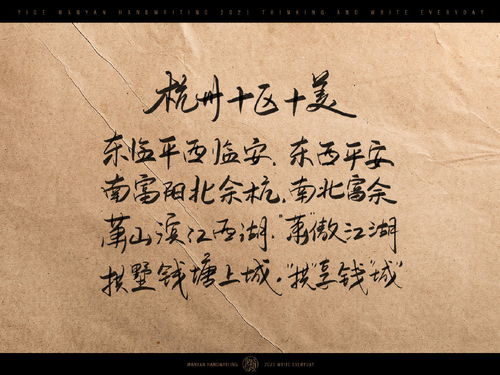 YIGE MANYAN HANDWRITING 2021 THINKING AND WRITE EVERYDAY
杭州十区十美
东临平西临安,东西平安
南富阳北余杭,南北富余
萧山滨江西湖,"萧"傲江湖
拱墅钱塘上城,"拱"享钱"城"
MANYAN HANDWRITING 2021 WRITE EVERYDAY